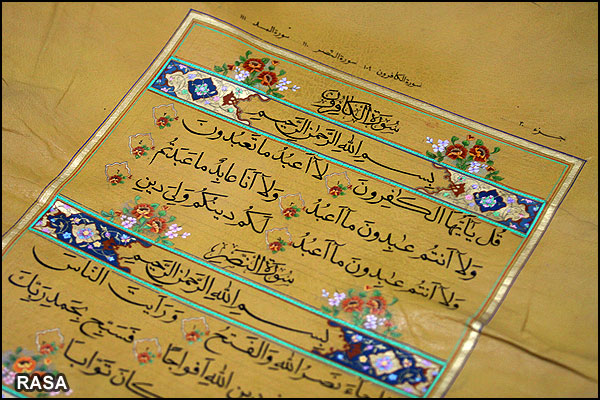 جزء ٣٠
سورة الكافرون ١٠٩ سورة النصر ١١٠ سورة المسد ١١١
سُورَةُ الكَافِرُونَ
بِسمِ اللهِ الرَّحمٰنِ الرَّحيمِ
قُل يٰٓأَيُّهَا الكٰفِرُونَ لَآ أَعبُدُ مَا تَعبُدُونَ
وَلَآ أَنتُم عٰبِدُونَ مَآ أَعبُدُ وَلَآ أَنَا عَابِدٌ مَا عَبَدتُم
وَلَآ أَنتُم عٰبِدُونَ مَآ أَعبُدُ لَكُم دِينُكُم وَلِيَ دِينِ
سُورَةُ النَّصرِ
بِسمِ اللهِ الرَّحمٰنِ الرَّحيمِ
جَآءَ نَصرُ اللهِ وَالفَتحُ وَرَأَيتَ النَّاسَ
دِينِ اللهِ أَفوَاجًا فَسَبِّح بِحَمدِ رَبِّكَ
كَانَ تَوَّابًا
RASA